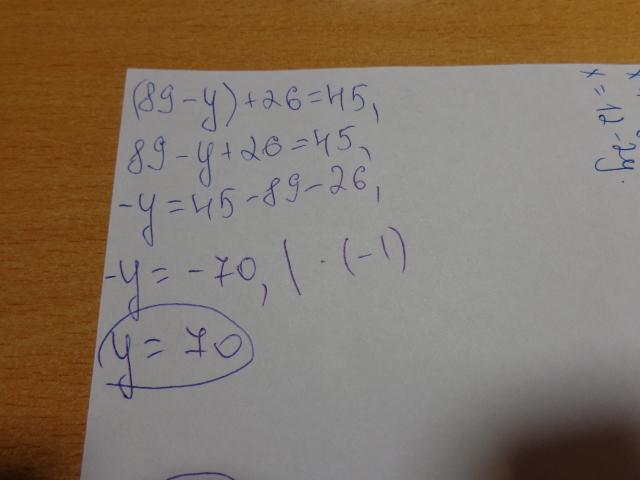 (89-y)+26=45,
89-y+26=45,
-y=45-89-26,
-y=-70, | · (-1)
y=70
x=12-2y.